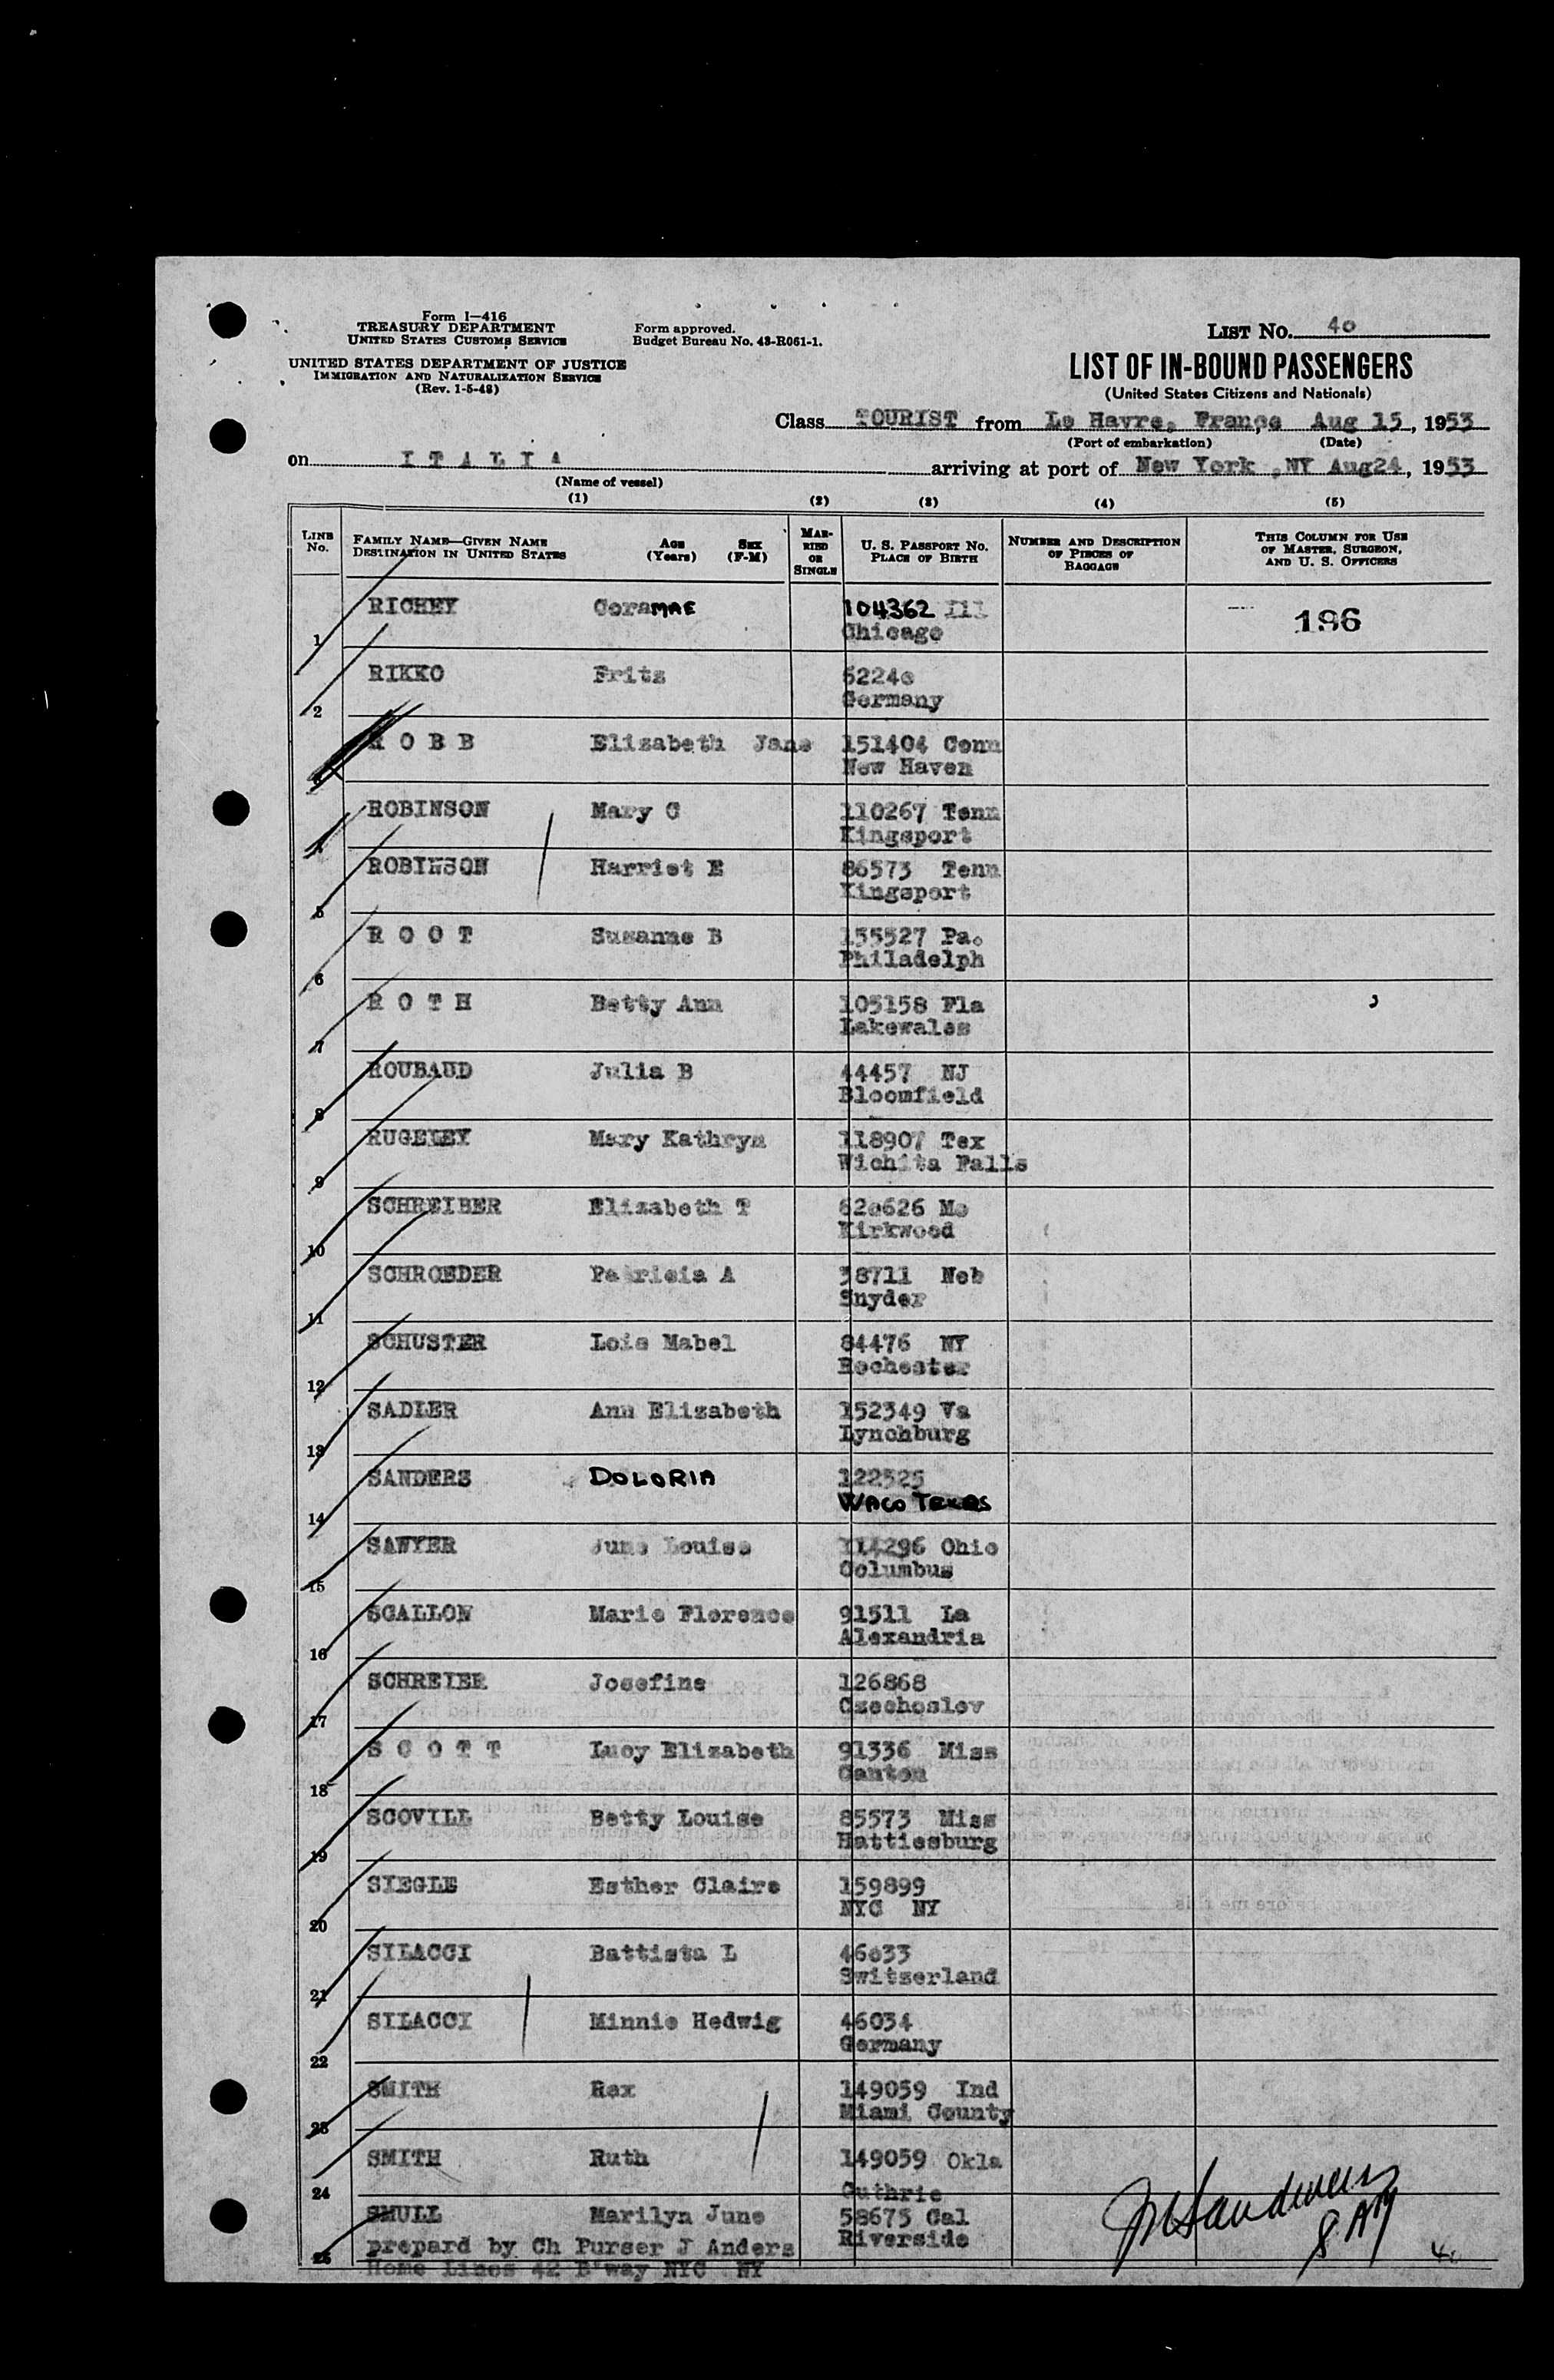 Form I—416
TREASURY DEPARTMENT
UNITED STATES CUSTOMS SERVICE
UNITED STATES DEPARTMENT OF JUSTICE
IMMIGRATION AND NATURALIZATION SERVICE
(Rev. 1-5-48)
Form approved.
Budget Bureau No. 43-R061-1.
LIST NO. 4o
LIST OF IN-BOUND PASSENGERS
(United States Citizens and Nationals)
Class TOURIST from Le Havre, France Aug 15, 1953
(Port of embarkation) (Date)
on I T A L I A arriving at port of New York ,NY Aug24, 1953
(Name of vessel)
(1) (2) (3) (4) (5)
LINE NO.
FAMILY NAME—GIVEN NAME
DESTINATION IN UNITED STATES
AGE (Years)
SEX (F-M)
MARRIED OR SINGLE
U. S. PASSPORT NO.
PLACE OF BIRTH
NUMBER AND DESCRIPTION OF PIECES OF BAGGAGE
THIS COLUMN FOR USE OF MASTER, SURGEON, AND U. S. OFFICERS
1 RICHEY Coramae 104362 Ill 186
Chicago
2 RIKKO Fritz 6224o
Germany
R O B B Elizabeth Jane 151404 Conn
New Haven
4 ROBINSON Mary C 110267 Tenn
Kingsport
5 ROBINSON Harriet E 86573 Tenn
Kingsport
6 R O O T Susanne B 155527 Pa.
Philadelph
7 R O T H Betty Ann 105158 Fla
Lakewales
8 ROUBAUD Julia B 44457 NJ
Bloomfield
9 RUGELEY Mary Kathryn 118907 Tex
Wichita Falls
10 SCHREIBER Elizabeth T 62o626 Mo
Kirkwood
11 SCHROEDER Patricia A 38711 Neb
Snyder
12 SCHUSTER Lois Mabel 84476 NY
Rochester
13 SADLER Ann Elizabeth 152349 Va
Lynchburg
14 SANDERS DOLORIA 122525
WACO TEXAS
15 SAWYER June Louise 114296 Ohio
Columbus
16 SCALLON Marie Florence 91511 La
Alexandria
17 SCHREIER Josefine 126868
Czechoslov
18 S C O T T Lucy Elizabeth 91336 Miss
Canton
19 SCOVILL Betty Louise 85573 Miss
Hattiesburg
20 SIEGLE Esther Claire 159899
NYC NY
21 SILACCI Battista L 46o33
Switzerland
22 SILACCI Minnie Hedwig 46034
Germany
23 SMITH Rex 149059 Ind
Miami County
24 SMITH Ruth 149059 Okla
Guthrie
25 SMULL Marilyn June 58675 Cal
Riverside
prepard by Ch Purser J Anders
Home Lines 42 B'way NYC NY
8 AM